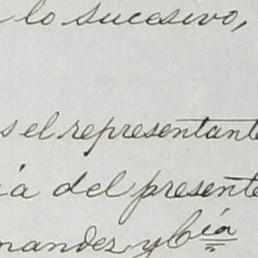 lo sucesivo,
s el representante
ia del presente
nandez y Cía